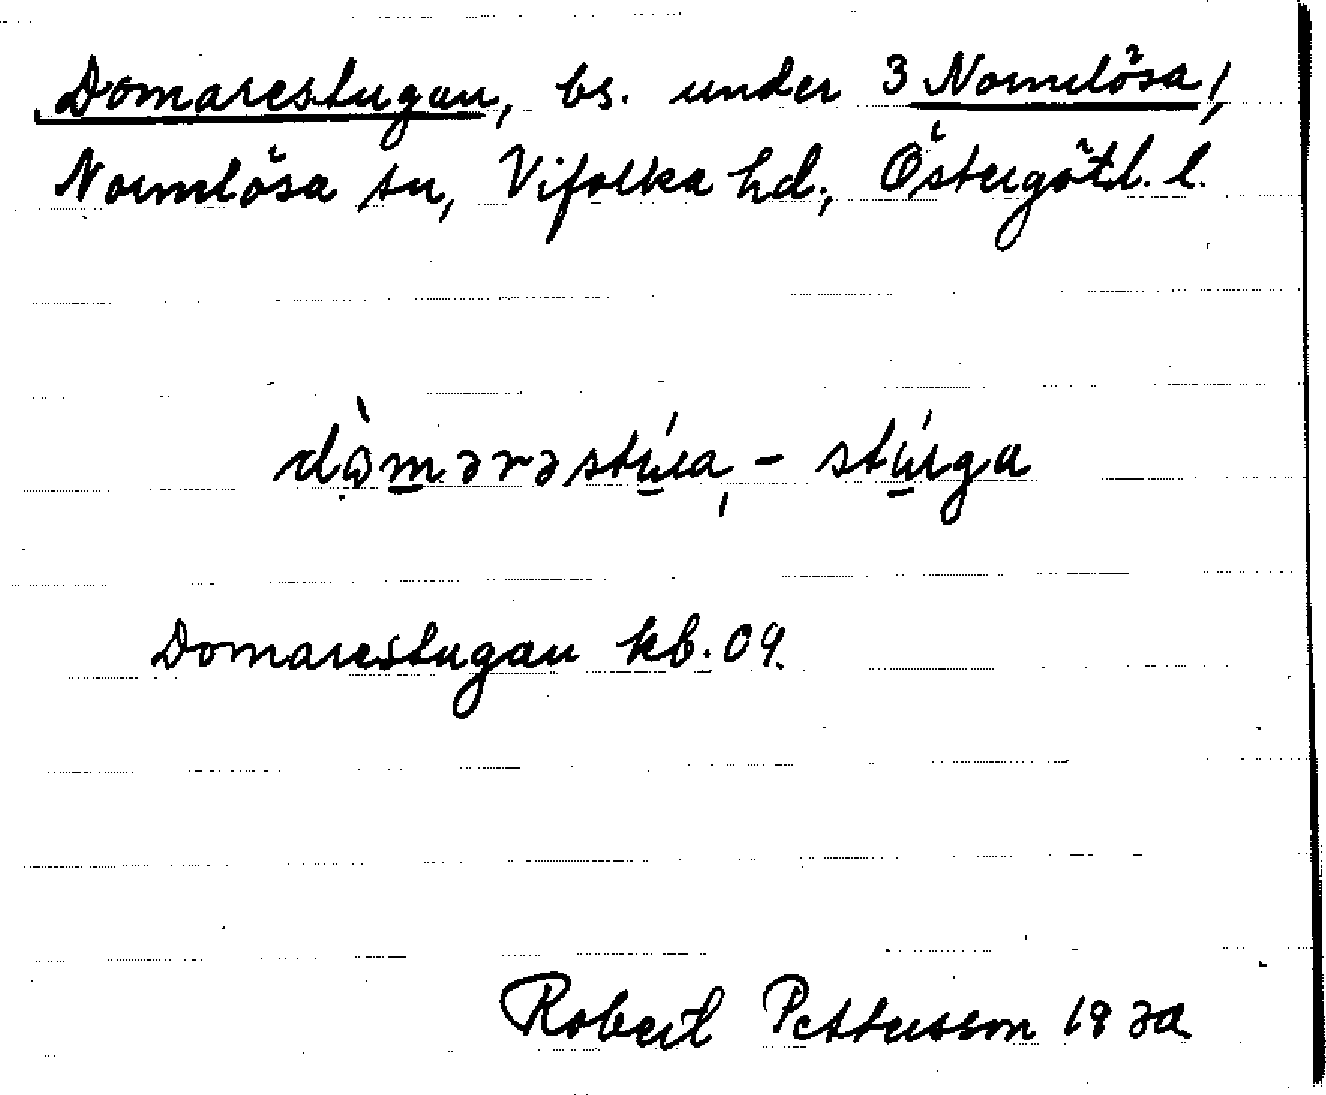 Domarestugan, bs. under 3 Normlösa,
Normlösa sn, Vifolka hd., Östergötl. l.
dòmərəstúa, - stúga
Domarestugan kb. 09.
Robert Pettersson